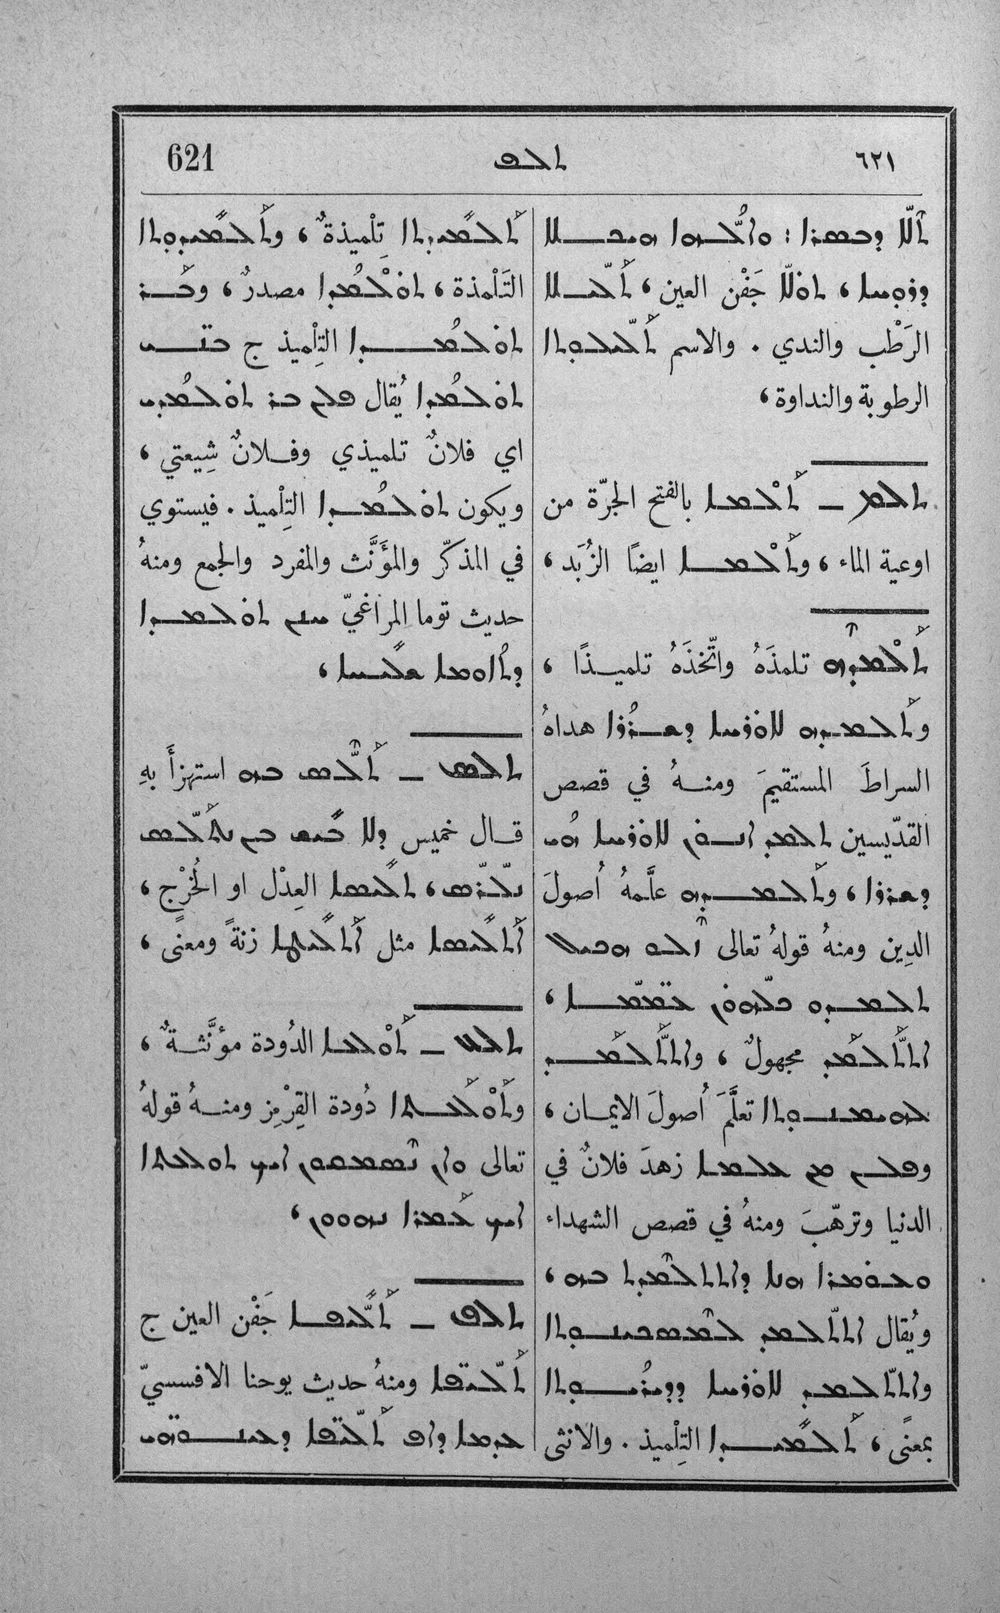 621 ܬܠܦ ٦٢١
ܬܠܠܐ ܕܒܣܪܐ܆
ܕܪܘܚܐ، ܬܘܠܠܐ جَفْن العين، ܬܠܝܠܐ
الرَطْب والندي . والاسم ܬܠܝܠܘܬܐ
الرطوبة والنداوة،
ܬܠܡ — ܬܠܡܐ بالفتح الجرّة من
اوعية الماء، وܬܠܡܐ ايضًا الزُبَد،
ܬܠܡܕܗ تلمذَهُ واتّخذَهُ تلميذًا،
وܬܠܡܕܗ ܠܐܘܪܚܐ ܕܫܪܪܐ هداهُ
السراطَ المستقيمَ ومنهُ في قصص
القدّيسين ܬܠܡܕ ܐܢܘܢ ܠܐܘܪܚܐ ܗܝ
ܕܫܪܪܐ، وܬܠܡܕܗ علَّمهُ أُصولَ
الدِين ومنهُ قولهُ تعالى ܙܠܘ ܗܟܝܠ
ܬܠܡܕܘ ܟܠܗܘܢ ܥܡܡܐ،
ܐܬܬܠܡܕ مجهولٌ، وܐܬܬܠܡܕ
ܠܡܗܝܡܢܘܬܐ تعلَّمَ أُصولَ الايمان،
وܦܠܢ ܡܢ ܥܠܡܐ زهدَ فلانٌ في
الدنيا وترهّبَ ومنهُ في قصص الشهداء
ܘܥܘܡܪܐ ܗܢܐ ܕܐܬܬܠܡܕܬ ܒܗ،
ويُقال ܐܬܬܠܡܕ ܠܡܣܟܢܘܬܐ
وܐܬܬܠܡܕ ܠܐܘܪܚܐ ܕܕܝܪܝܘܬܐ
بمعنًى، ܬܠܡܝܕܐ التِلْميذ . والانثى
ܬܠܡܝܕܬܐ تِلْميذةٌ، وܬܠܡܝܕܘܬܐ
التَلْمذة، ܬܘܠܡܕܐ مصدرٌ، وܒܪ
ܬܘܠܡܕܐ التِلْميذ ج ܒܢܝ
ܬܘܠܡܕܐ يُقال ܦܠܢ ܒܪ ܬܘܠܡܕܝ
اي فلانٌ تلميذي وفلانٌ شِيعتي،
ويكون ܬܘܠܡܕܐ التِلْميذ . فيستوي
في المذكّر والمؤَنَّث والمفرد والجمع ومنهُ
حديث توما المراغيّ ܚܢܢ ܬܘܠܡܕܐ
ܕܬܐܘܡܐ ܫܠܝܚܐ،
ܬܠܣ — ܬܠܣ ܒܗ استهزأَ بهِ
قال خميس ܕܠܐ
ܬܠܝܣܐ العِدْل او الخُرْج،
ܬܠܝܣܐ مثل زنةً ومعنًى،
ܬܠܥ — ܬܘܠܥܐ الدُودة مؤنَّثةٌ،
وܬܘܠܥܬܐ دُودة القِرْمِز ومنهُ قولهُ
تعالى ܘܐܢ ܢܣܡܩܘܢ ܐܝܟ ܬܘܠܥܬܐ
ܐܝܟ ܥܡܪܐ ܢܗܘܘܢ،
ܬܠܦ — ܬܠܝܦܐ جَفْن العين ج
ܬܠܝܦܐ ومنهُ حديث يوحنا الافسسيّ
ܥܕܡܐ ܕܐܦ ܬܠܝܦܐ ܕܥܝܢܘܗܝ